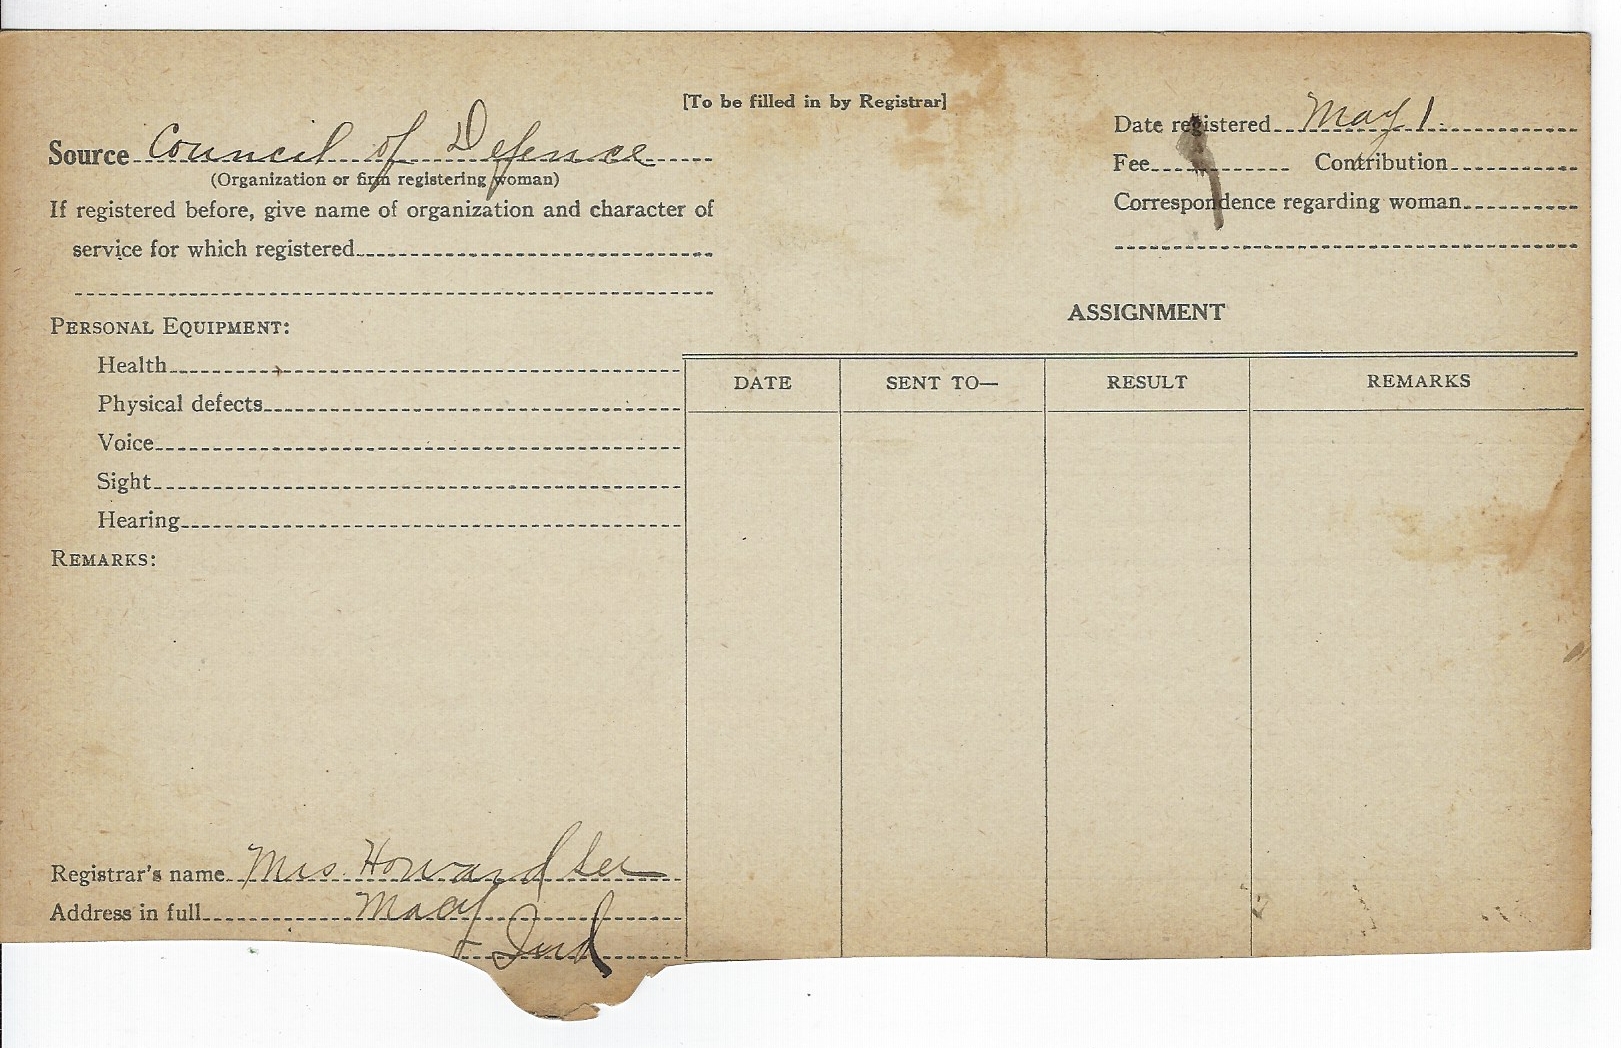 [To be filled in by Registrar]
Source Council of Defence
(Organization or firm registering woman)
If registered before, give name of organization and character of
service for which registered
Date registered May 1.
Fee Contribution
Correspondence regarding woman
PERSONAL EQUIPMENT:
Health
Physical defects
Voice
Sight
Hearing
REMARKS:
ASSIGNMENT
DATE SENT TO— RESULT REMARKS
Registrar's name Mrs. Howard
Address in full Macy
Ind